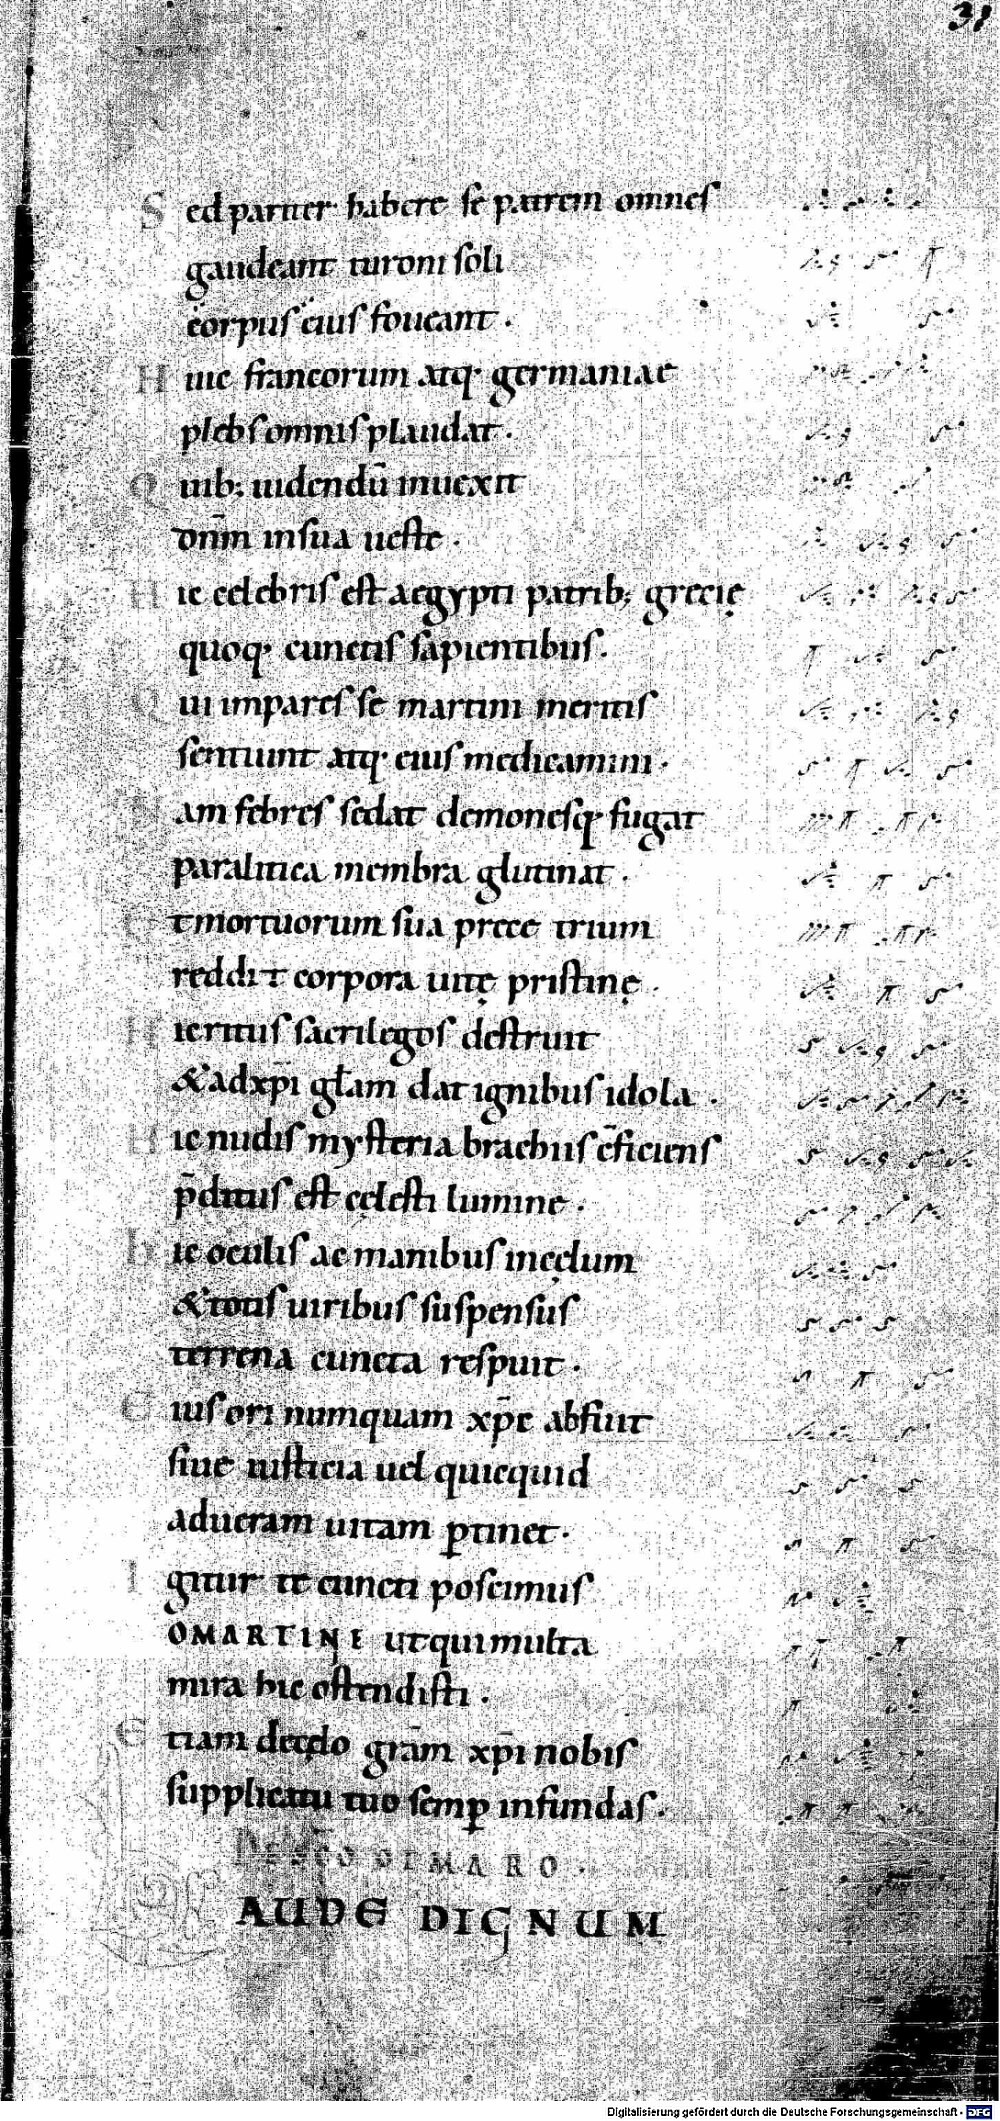 31
Sed pariter habere se patrem omnes
gaudeant turoni soli
corpus eius foueant.
Huic francorum atq; germaniae
plebs omnis plaudat.
Quib; uidendū inuexit
dn̄m in sua ueste.
Hic celebris est aegypti patrib; grecię
quoq; cunctis sapientibus.
Qui impares se martini meritis
sentiunt atq; eius medicamini.
Nam febres sedat demonesq; fugat
paralitica membra glutinat.
Et mortuorum sua prece trium
reddit corpora uitę pristinę.
Hic ritus sacrilegos destruit
& ad xp̄i gl̄am dat ignibus idola.
Hic nudis mysteria brachiis c̄ficiens
p̄ditus est cęlesti lumine.
hic oculis ac manibus in cęlum
& totis uiribus suspensus
terrena cuncta respuit.
Cuius ori numquam xp̄c abfuit
siue iusticia uel quicquid
ad ueram uitam ꝑtinet.
Igitur te cuncti poscimus
O MARTINE ut qui multa
mira hic ostendisti.
Etiam de cęlo grām xp̄i nobis
supplicatu tuo semꝑ infundas.
DE SC̄O OTMARO.
AUDE DIGNUM
Digitalisierung gefördert durch die Deutsche Forschungsgemeinschaft - DFG